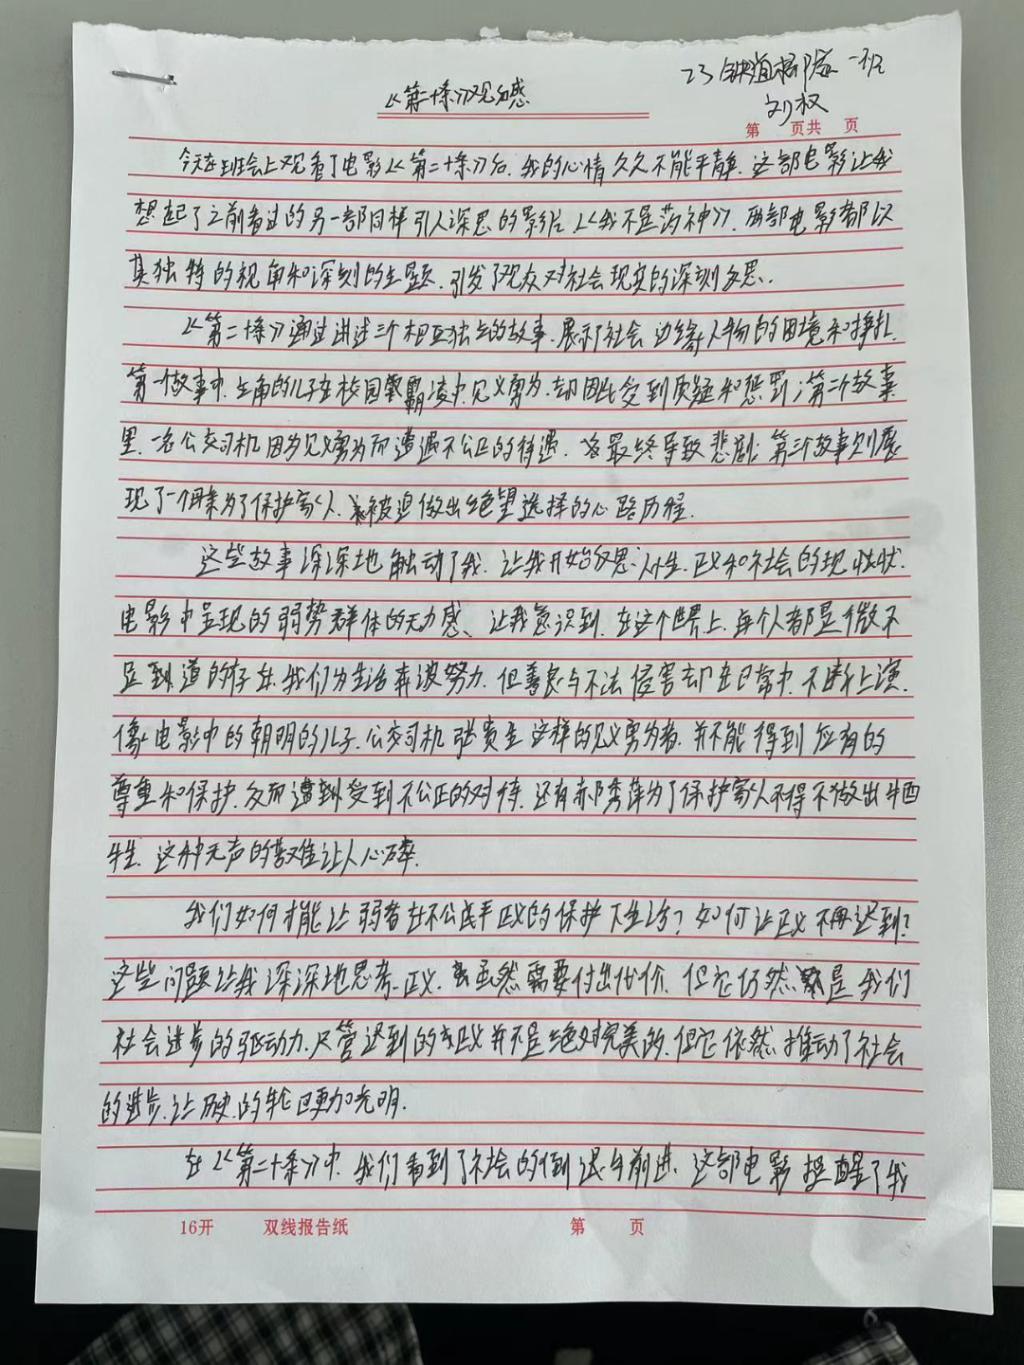 23铁道桥隧一班
《第二十条》观后感
刘权
第 页共 页
今天在班会上观看了电影《第二十条》后,我的心情久久不能平静.这部电影让我
想起了之前看过的另一部同样引人深思的影片《我不是药神》.两部电影都以
其独特的视角和深刻的主题.引发了观众对社会现实的深刻反思.
《第二十条》通过讲述三个相互独立的故事.展示了社会边缘人物的困境和挣扎.
第一个故事中.主角的儿子在校园霸凌中见义勇为.却因此受到质疑和惩罚;第二个故事
里.一名公交司机因为见义勇为而遭遇不公正的待遇.最终导致悲剧;第三个故事则展
现了一个母亲为了保护家人.被迫做出绝望选择的心路历程.
这些故事深深地触动了我.让我开始反思人性.正义和社会的现状.
电影中呈现的弱势群体的无力感、让我意识到.在这个世界上.每个人都是微不
足到道的存在.我们为生活奔波努力.但善良与不法侵害却在日常中.不断上演.
像电影中的韩明的儿子.公交司机张贵生这样的见义勇为者.并不能得到应有的
尊重和保护.反而遭到受到不公正的对待.还有郝秀萍为了保护家人不得不做出牺
牲.这种无声的艰难让人心碎.
我们如何才能让弱者在不公或平正义的保护下生活?如何让正义不再迟到?
这些问题让我深深地思考.正义.虽然需要付出代价.但它仍然是我们
社会进步的驱动力.尽管迟到的正义并不是绝对完美的.但它依然推动了社会
的进步.让历史的轮回更加光明.
在《第二十条》中.我们看到了社会的倒退与前进.这部电影提醒了我
16开 双线报告纸 第 页